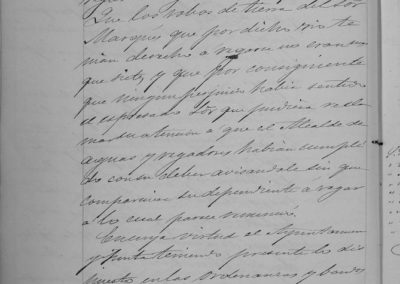 Que los robos de tierra del Sor
Marques que por dicho rio te
nian derecho a regarse no eran mas
que siete y que por consiguiente
que ningun perjuicio habia sentido
el espresado Sor que pudiera recla
mar su atencion a que el Alcalde de
aguas y regadores habian cumpli
do con su deber avisandole sin que
compareciera su dependiente a regar
a lo cual parece renunció.
En cuya virtud el Ayuntamien
y Junta teniendo presente lo dis
puesto en las Ordenanzas y bandos